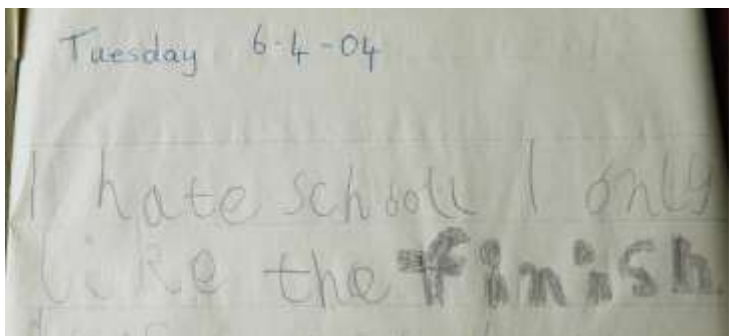 Tuesday 6-4-04
I hate schooll I only
like the finish.